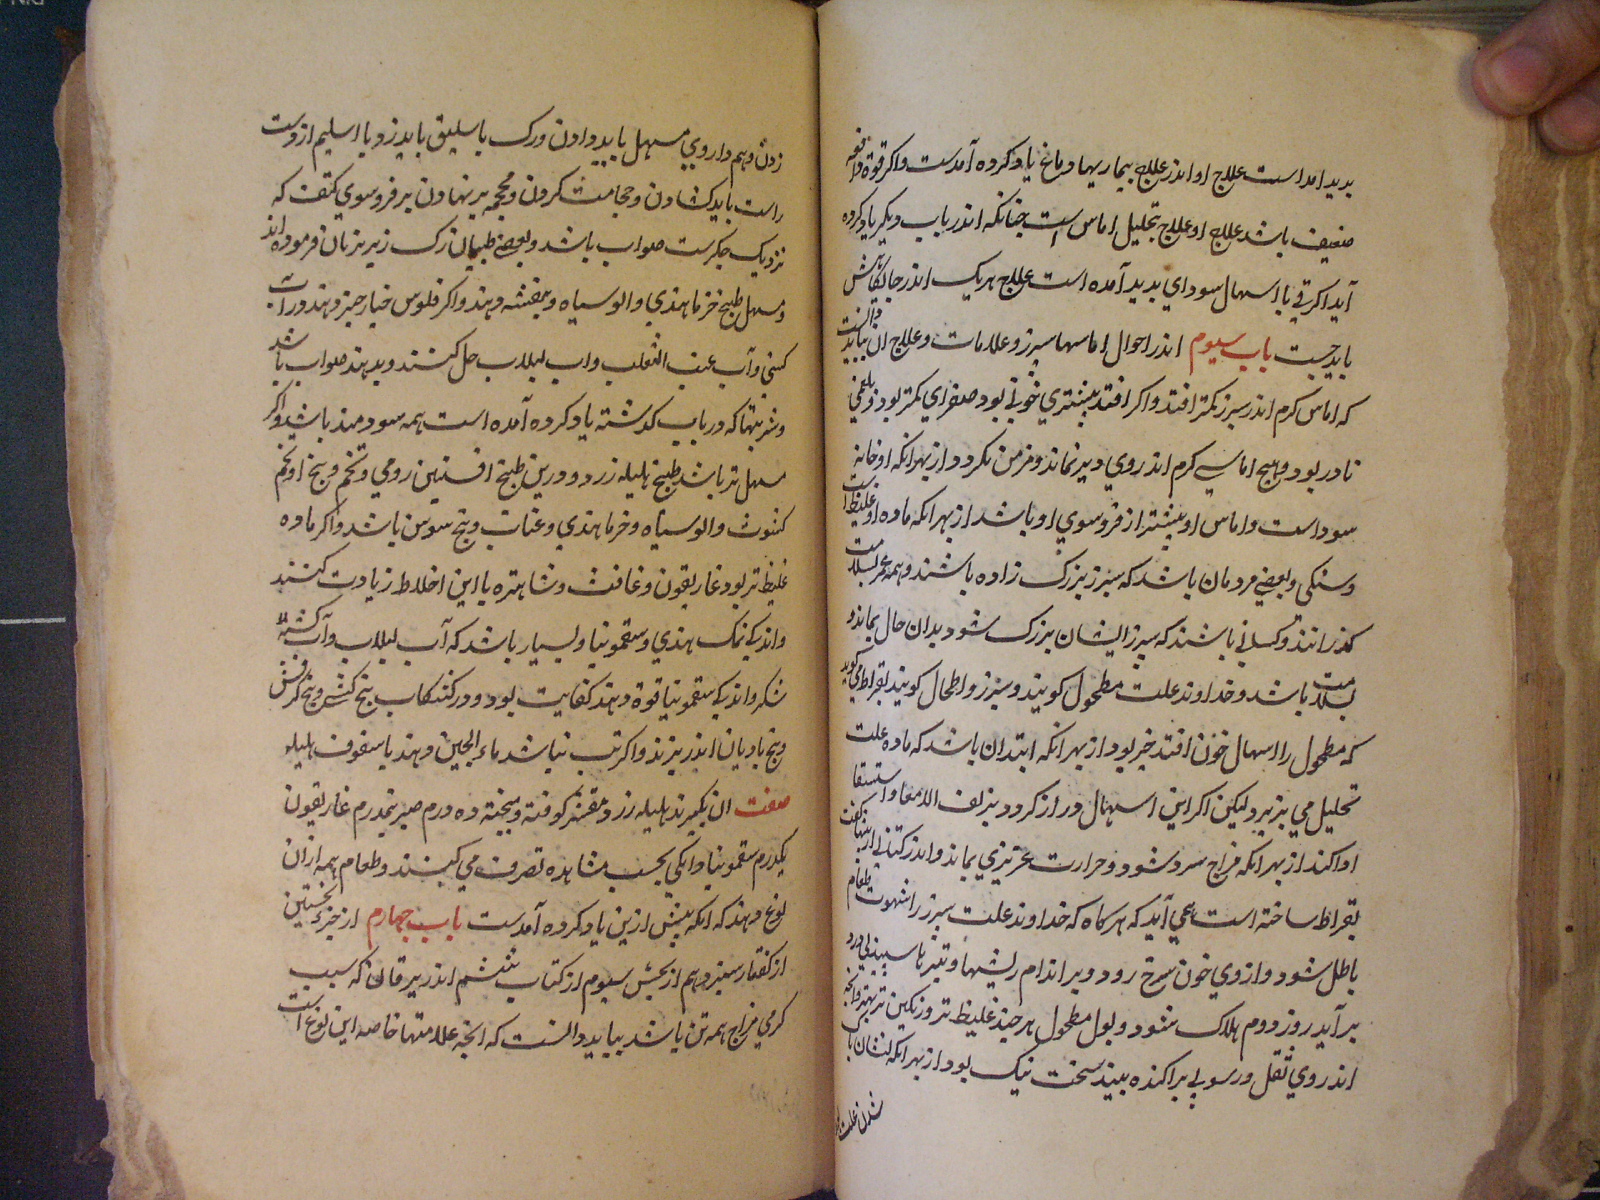 بدید امداست علاج او اندر علاج بیماریها دماغ یاد کرده آمدست واکر قوة دافعه
ضعیف باشد علاج او علاج تحلیل اماس است جنانکه اندر باب دیکر یاد کرده
آید اکر قی یا اسهال سودای بدید آمده است علاج هریک اندر جایکاهش
باید جست باب سیوم اندر احوال اماسها سپرز و علامات و علاج ان بباید دانست
که اماس کرم اندر سپرز کمتر افتد واکر افتد بیشتری خونی بود صفرای کمتر بود و بلغمی
نادر بود وهیج اماسی کرم اندر وی دیر نماند ومزمن نکردد از بهر انکه او خانه
سوداست واماس او بیشتر از فروسوی او باشد از بهر انکه ماده او غلیظ است
وسنکی وبعضی مردمان باشد که سپرز بزرک زاده باشند وهمه عمر بسلامت
کذرانند وکسانی باشند که سپرز ایشان بزرک شود بدان حال بماند و
بسلامت باشد وخداوند علت مطحول کویند وسپرز را طحال کویند بقراط می کوید
که مطحول را اسهال خون افتد خیر بود از بهر انکه ابتدان باشد که ماده علت
تحلیل می پزیرد ولیکن اکر این اسهال دراز کردد بزلف الامعا و استسقا
اوا کند از بهر انکه مزاج سرد شود وحرارت عزیزی بماند واندر کتابی
بقراط ساخته است می آید که هرکاه که خداوند علت سپرز را شهوت طعام
باطل شود واز وی خون سرخ رود وبر اندام ریشها وبثرها سپید بی درد
بر آید روز دوم هلاک شود وبول مطحول هر جند غلیظ تر ورنکین تر بهتر وانجه
اندر وی ثقل ورسوبی براکنده بیند سخت نیک بود از بهر انکه نشان پاک
شدن علت بود
زدن وهم داروی مسهل باید دادن ورک باسلیق باید زد یا اسلیم از دست
راست باید کشادن وحجامت کردن ومحجمه بر نهادن بر فروسوی کتف که
نزدیک جکرست صواب باشد وبعضی طبیبان رک زیر زبان فرموده اند
ومسهل طبیخ خرما هندی والو سیاه وبنفشه دهند واکر فلوس خیارجنبر دهند در آب
کسنی وآب عنب الثعلب واب لبلاب حل کنند وبدهند صواب باشد
وشربتها که در باب کذشته یاد کرده آمده است همه سودمند باشد واکر
مسهل تر باشد طبیخ هلیله زرد ودرین طبیخ افسنتین رومی وتخم وبیخ او وتخم
کثوث والو سیاه وخرما هندی وعناب وبیخ سوس باشد واکر ماده
غلیظ تر بود غاریقون وغافث وشاهتره با این اخلاط زیادت کنند
واندکی نمک هندی وسقمونیا وبسیار باشد که آب لبلاب وآب کشنه
شکر واندکی سقمونیا قوة دهند کفایت بود ودر کشکاب بیخ کسنی وبیخ کرفس
وبیخ بادیان اندر پزند واکر تب نباشد ماء الجبن دهند با سفوف هلیله
صفت ان بکیرند هلیله زرد مقشر کوفته وبیخته ده درم صبر بنجدرم غاریقون
یکدرم سقمونیا دانکی بحسب مشاهده تصرف می کنند وطعام همه ازان
نوع دهند که انکه بیش ازین یاد کرده آمدست باب جهارم از جزء نخستین
از کفتار سیزدهم از بخش سیوم از کتاب ششم اندر یرقانی که سبب
کرمی مزاج همه تن باشد بباید دانست که انجه علامتها خاصه این نوع است